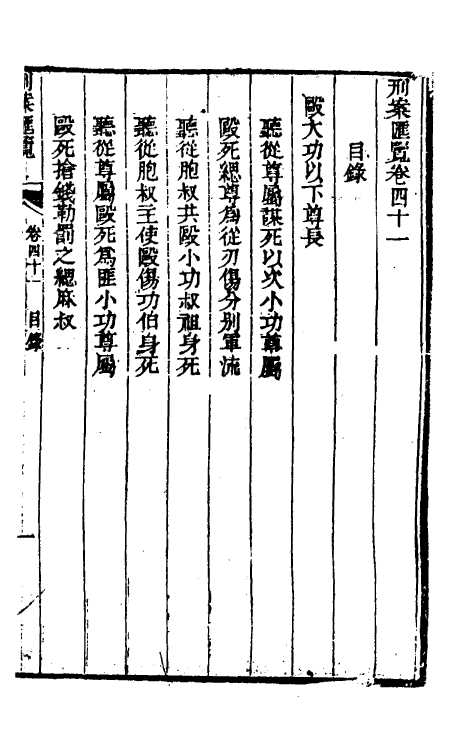 刑案匯覽卷四十一
目錄
毆大功以下尊長
聽從尊屬謀死以次小功尊屬
毆死緦尊為從刃傷分別軍流
聽從胞叔共毆小功叔祖身死
聽從胞叔主使毆傷功伯身死
聽從尊屬毆死為匪小功尊屬
毆死搶錢勒罰之緦麻叔
刑案匯覽 卷四十一 目錄 一